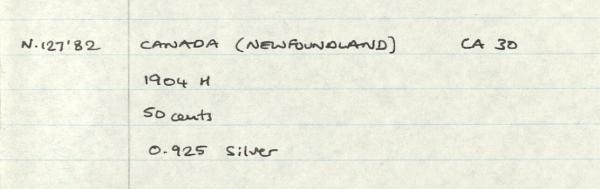 N.127'82 CANADA (NEWFOUNDLAND) CA 30
1904 H
50 cents
0.925 Silver